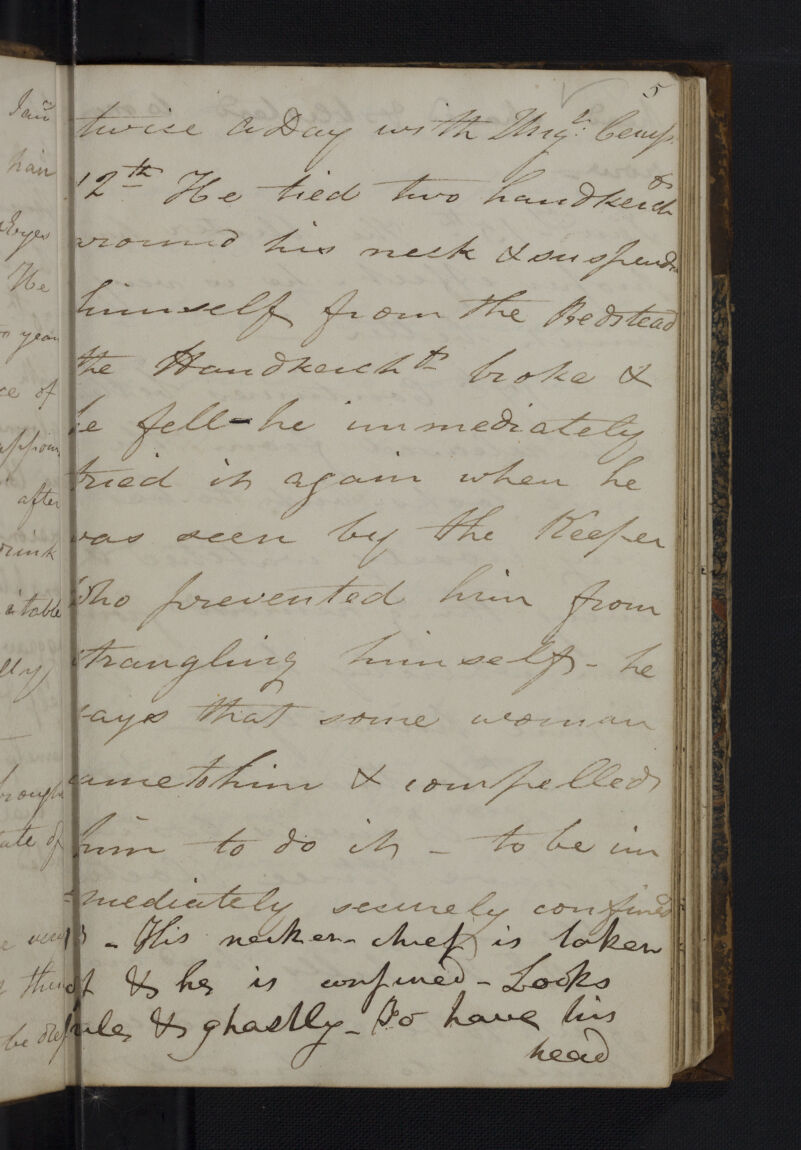 5
twice a Day with Ung: Camp
12th He tied two handkerch
around his neck & suspend
himself from the Bedstead
the Handkerchth broke &
he fell - he immediately
tried it again when he
was seen by the Keeper
who prevented him from
strangling himself - he
says that some woman
came to him & compelled
him to do it - to be im
=mediately securely confined
- His neck-er-chief is taken
off & he is confined - Looks
pale & ghastly - To have his
head
hair
Eyes
He
year
ce of
after
drink
itable
lly
brough
ate of